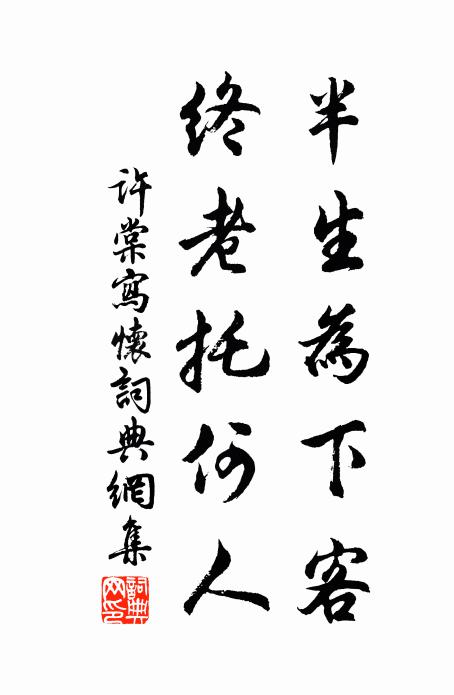 半生為下客
終老托何人
許棠寫懷詞典網集
詞典網印